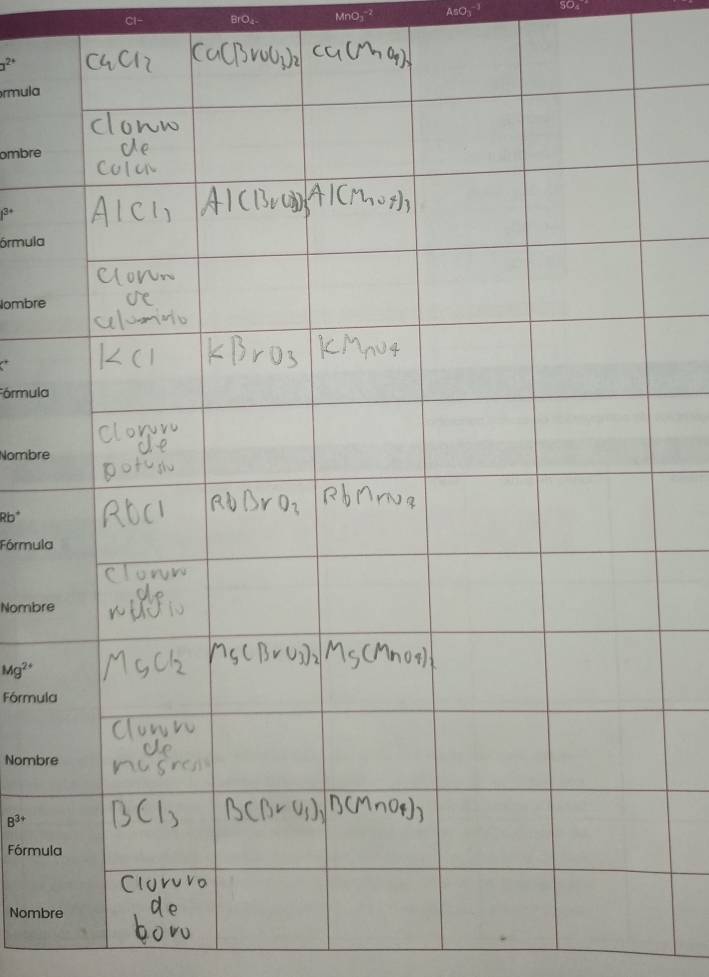 Cl− BrO₄₋ MnO₃⁻² AsO₃⁻³ SO₄⁻²
a²⁺ CaCl2 Ca(BrO3)2 Ca(MnO4)2
órmula
ombre Cloruro
de
calcio
l³⁺ AlCl3 Al(BrO3)3 Al(MnO4)3
órmula
Nombre Cloruro
de
aluminio
K⁺ KCl KBrO3 KMnO4
Fórmula
Nombre Cloruro
de
potasio
Rb⁺ RbCl RbBrO3 RbMnO4
Fórmula
Nombre Cloruro
de
rubidio
Mg²⁺ MgCl2 Mg(BrO3)2 Mg(MnO4)2
Fórmula
Nombre Cloruro
de
magnesio
B³⁺ BCl3 B(BrO3)3 B(MnO4)3
Fórmula
Nombre Cloruro
de
boro